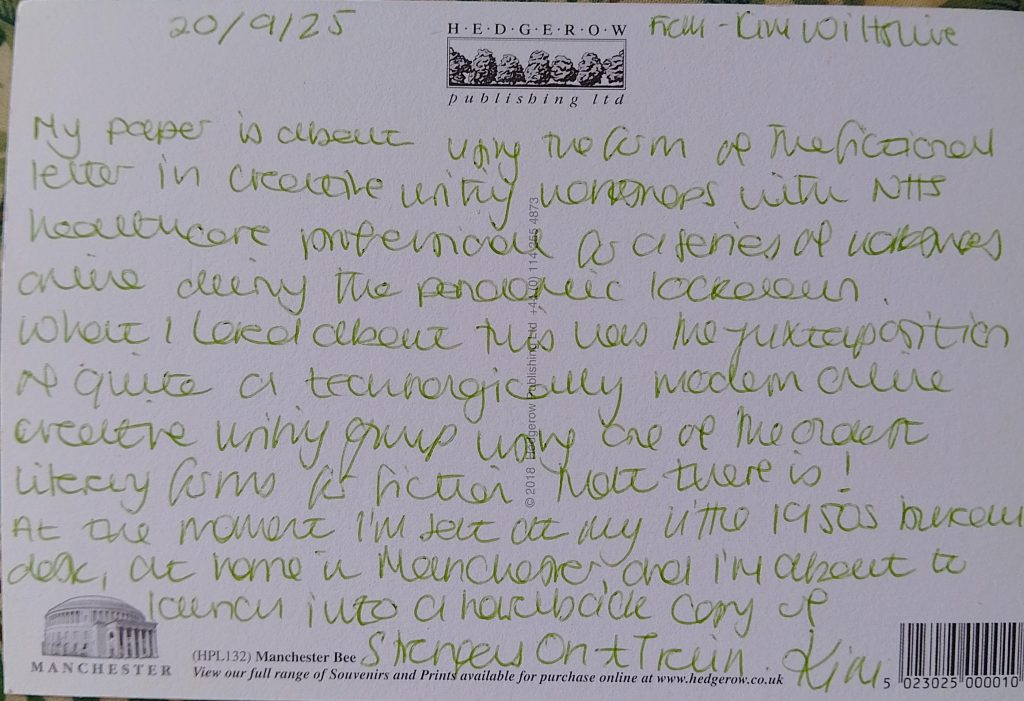 20/9/25
H·E·D·G·E·R·O·W
publishing ltd
From - Kim Wiltshire
My paper is about using the form of the fictional
letter in creative writing workshops with NHS
healthcare professionals for a series of workshops
online during the pandemic lockdown.
What I loved about this was the juxtaposition
of quite a technologically modern online
creative writing group using one of the oldest
literary forms for fiction that there is!
At the moment I'm sat at my little 1950s bureau
desk, at home in Manchester, and I'm about to
launch into a hardback copy of
Strangers On A Train.
Kim
© 2018 Hedgerow Publishing Ltd +44 (0) 114 255 4873
MANCHESTER
(HPL132) Manchester Bee
View our full range of Souvenirs and Prints available for purchase online at www.hedgerow.co.uk
5 023025 000010